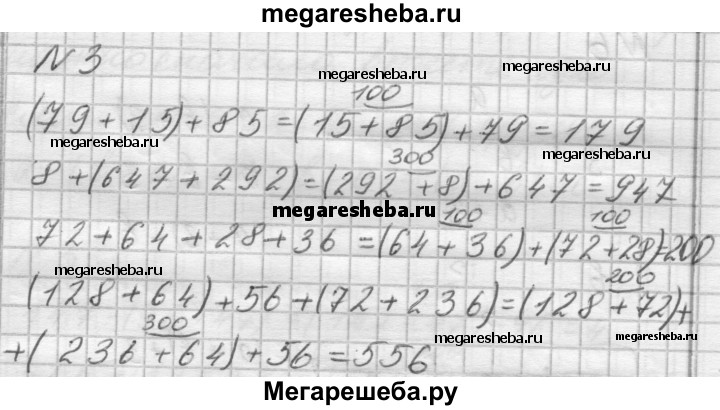 megaresheba.ru
N 3
megaresheba.ru
megaresheba.ru
100
(79+15)+85=(15+85)+79=179
megaresheba.ru
megaresheba.ru
300
8+(647+292)=(292+8)+647=947
megaresheba.ru
100 100
72+64+28+36=(64+36)+(72+28)=200
megaresheba.ru
megaresheba.ru
200
(128+64)+56+(72+236)=(128+72)+
megaresheba.ru
300
megaresheba.ru
+(236+64)+56=556
megaresheba.ru
Мегарешеба.ру